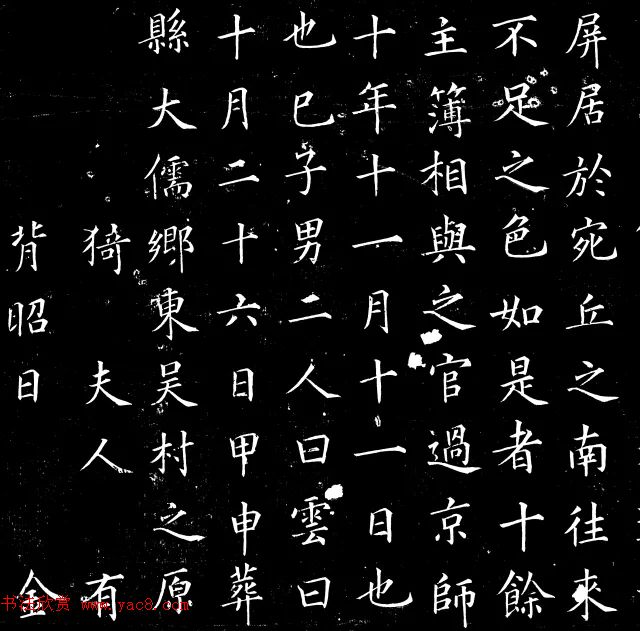 屏居於宛丘之南往來
不足之色如是者十餘
主簿相與之官過京師
十年十一月十一日也
也巳子男二人曰雲曰
十月二十六日甲申葬
縣大儒鄉東吴村之原
猗 夫人 有
背昭日 金
书法欣赏 www.yac8.com